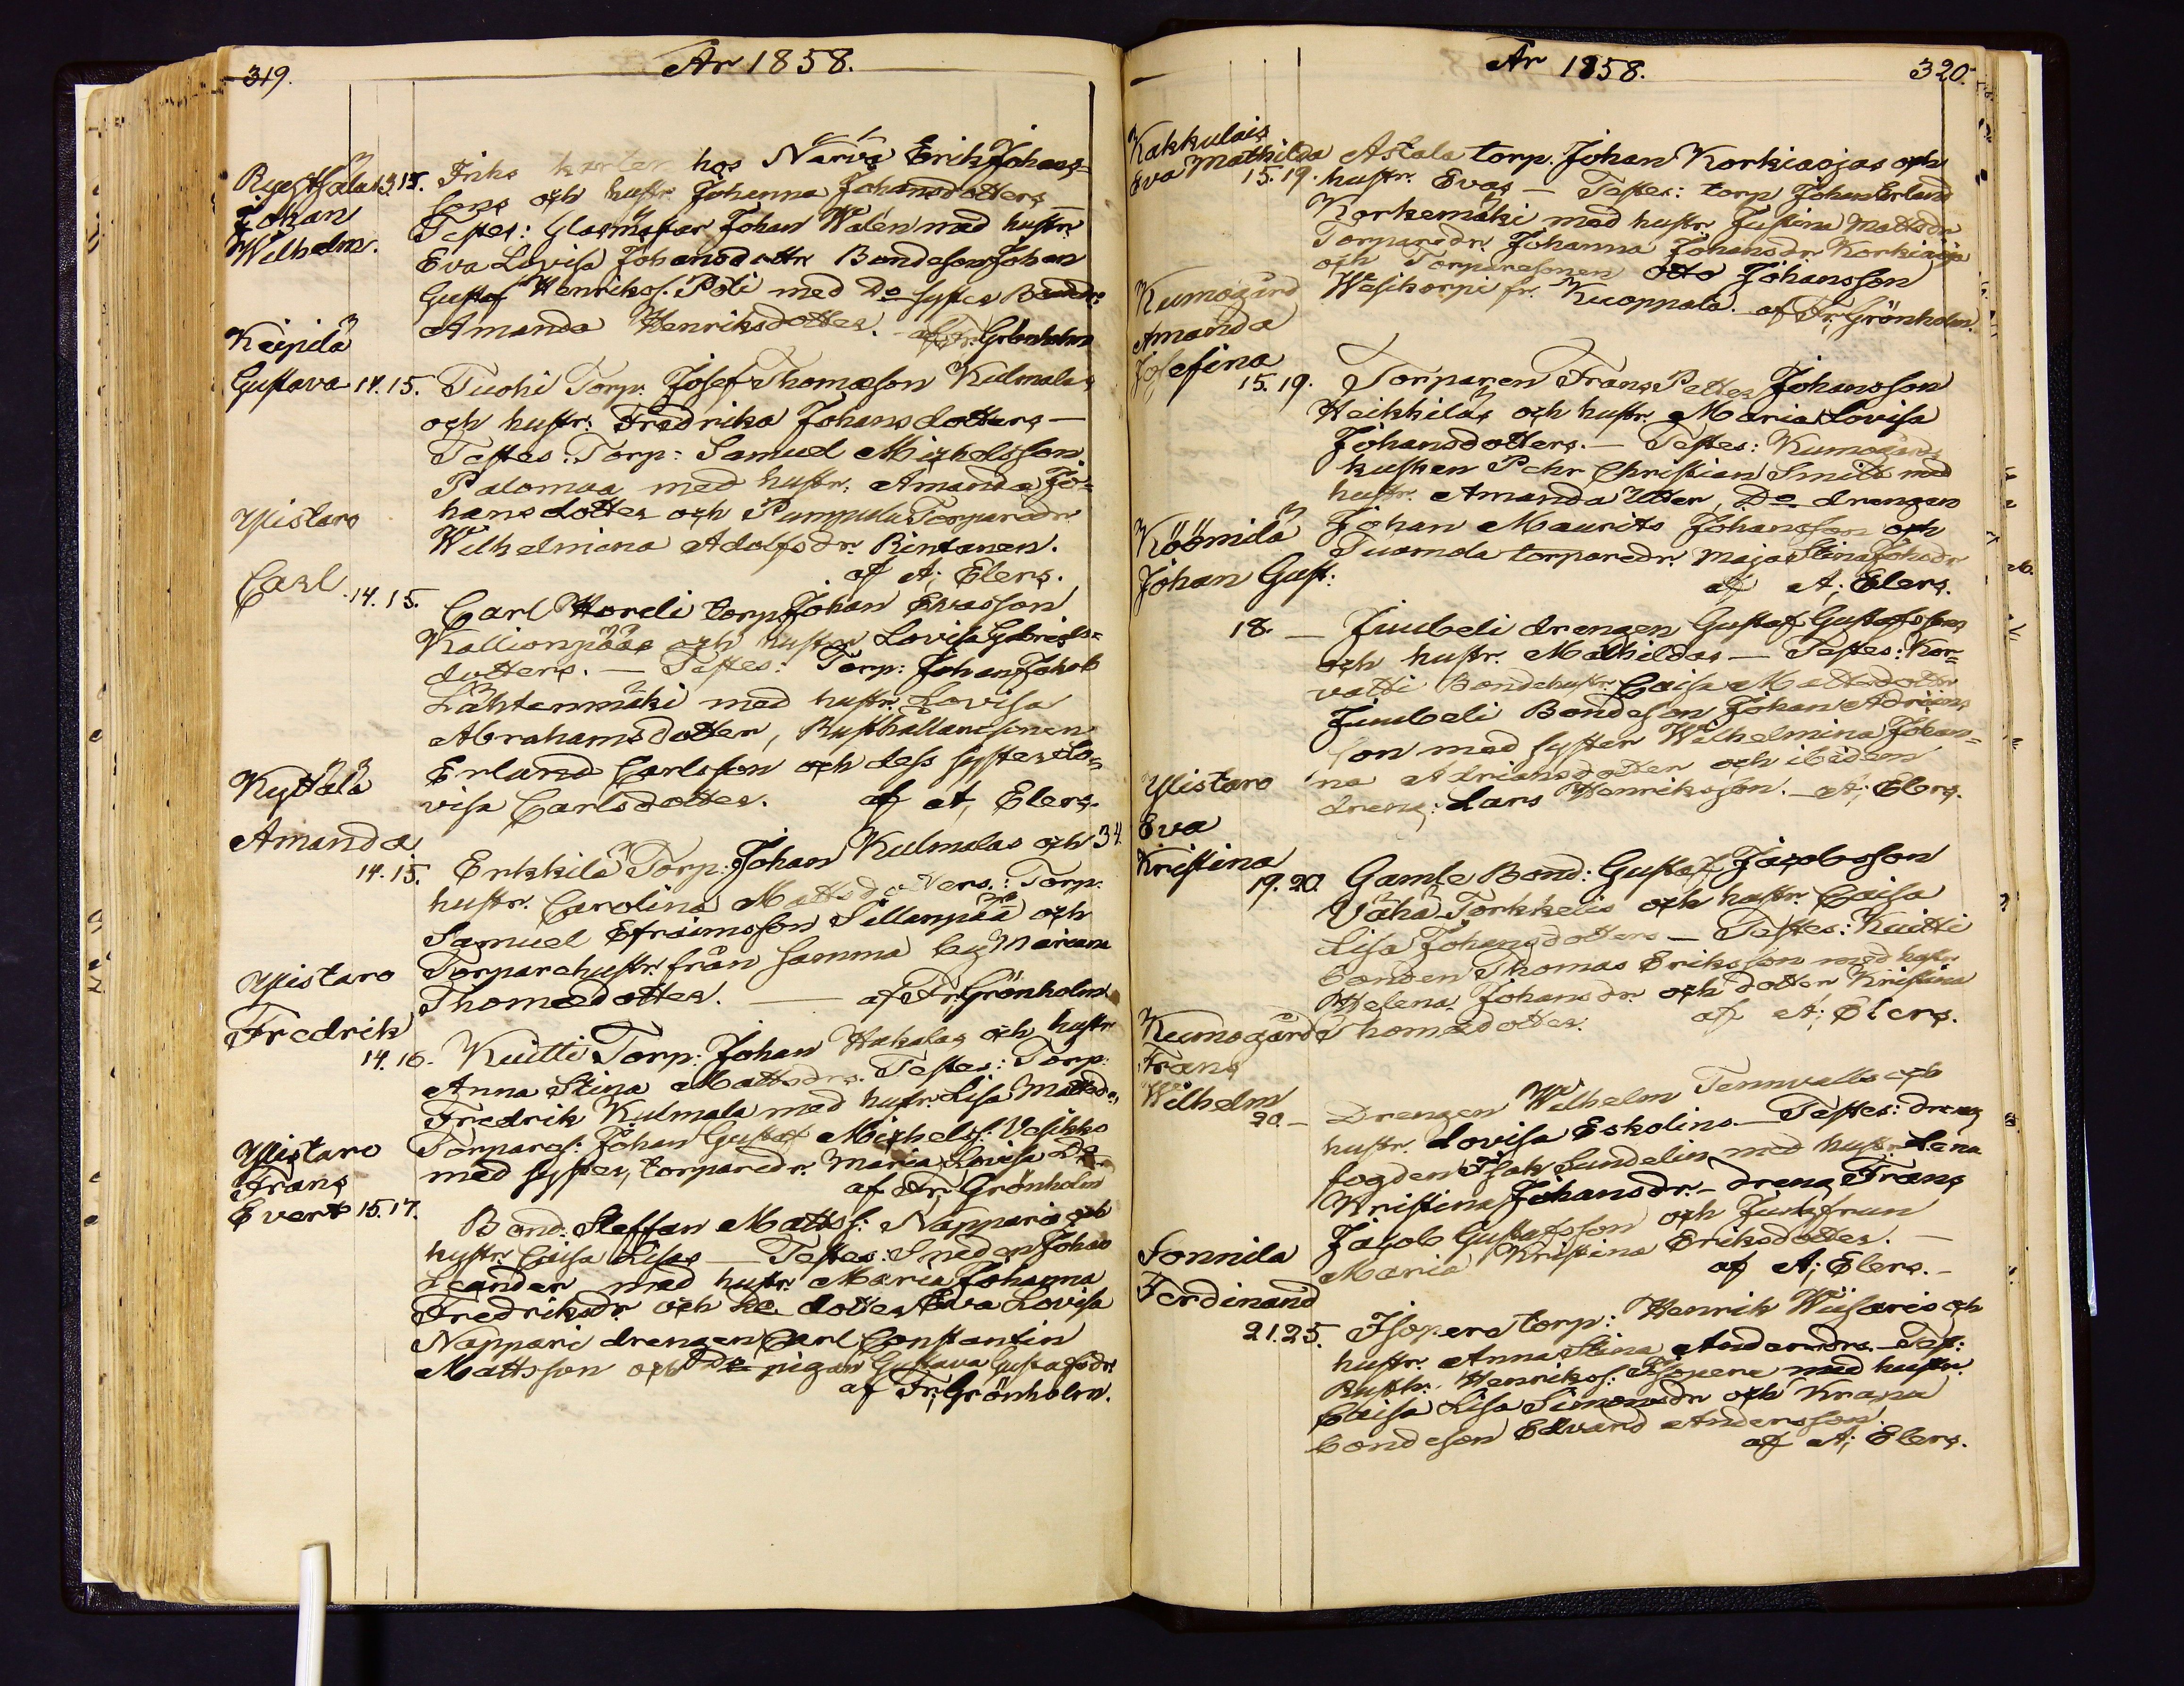 319.
År 1858.
Ryestfälä 13.15. Friko karlen hos Närvä Erik Johans-
Johan sons och hustr. Johanna Johansdotters
Wilhelm. Testes: Glasmästar Johan Walén med hustr.
Eva Lovisa Johansdottr Bondeson Johan
Gustaf Henrikss. Poli med Do syster Bondedr:
Amanda Henriksdotter. af Fr. Grönholm
Keipilä
Gustava 14.15. Tuohi Torp. Josef Thomasson Kulmalas
och hustr: Fredrika Johansdotters —
Testes: Torp: Samuel Michelsson
Palomaa med hustr. Amanda Jo-
Ylistaro hansdotter och Pumpulu Torparedr
Wilhelmina Adolfsdr. Rintanen.
af A; Elers.
Carl 14.15. Carl Hordi torp Johan Ewasson
Kallionpääs och hustrus Lovisa Gabriels-
dotters. — Testes: Torp: Johan Jakob
Lähtenmäki med hustr. Lovisa
Abrahamsdotter, Rusthållaresonen
Erland Carlsson och dess syster Lo-
Kyttälä visa Carlsdotter. af A; Elers.
Amanda
14.15. Erkkilä Torp: Johan Kulmalas och 34.
hustr. Carolina Mattsdotters.: Torp:
Samuel Efraimsson Sillanpää och
Torparehustr. från samma by Mariana
Ylistaro Thomasdotter. — af Fr. Grönholm
Fredrik
14.16. Kuitti Torp: Johan Hakalas och hustr
Anna Stina Mattsdrs. Testes: Torp:
Fredrik Kulmala med hustr. Lisa Mattsdr,
Torpares: Johan Gustaf Michelss: Vesikko
Ylistaro med syster, torparedr. Maria Lovisa Do
Frans af Fr. Grönholm
Evert 15.17.
Bond: Steffan Mattss: Napparis och
hustr. Caisa Lisas — Testes: Smeden Johan
Leander med hustr. Maria Johanna
Fredriksdr och do dotter Eva Lovisa
Nappari drengen Carl Constantin
Mattsson och Do pigan Gustava Gustafsdr.
af Fr. Grönholm.
År 1858.
320.
Kakkulais
Eva Mathilda Astala torp. Johan Korkiaojas och
15.19. hustr. Evas — Testes: torp Johan Erland
Korkemäki med hustr. Justina Mattsdr
Torparedr. Johanna Johansdr Korkiaoja
och Torparesonen Otto Johansson
Kumogård Wesikorpi fr. Kuoppala. af Fr. Grönholm.
Amanda
Josefina
15.19. Torparen Frans Petter Johansson
Heikkiläs och hustr. Maria Lovisa
Johansdotters. — Testes: Kumogårds
kusken Pehr Christian Smids med
hustr. Amanda Utter, Do drengen
Köömilä Johan Maurits Johansson och
Tuomola torparedr. Maja Stina Johsdr
Johan Gust: af A: Elers.
18. — Juubeli drengen Gustaf Gustafssons
och hustr. Mathildas — Testes: Kor-
vatti Bondehustr. Caisa Mattsdottr
Juubeli Bondeson Johan Adrians-
son med syster Wilhelmina Johan-
Ylistaro na Adriansdotter och ibidem
dreng: Lars Henriksson. — A; Elers.
Eva
Kristina
19.20. Gamle Bond: Gustaf Jacobsson
Vähä Torkkelis och hustr. Caisa
Lisa Johansdotters — Testes: Kuitti
bonden Thomas Eriksson med hustr
Helena Johansdr och dotter Kristina
Kumogård Thomasdotter. af A; Elers.
Frans
Wilhelm
20. — Drengen Wilhelm Tennvalls och
hustr. Lovisa Eskolins — Testes: dreng
fogden Isak Sundelin med hustr. Lena
Kristina Johansdr. — dreng Frans
Jacob Gustafsson och Jungfrun
Sonnila Maria Kristina Eriksdotter. —
af A; Elers. —
Ferdinand
21.25. Isopere torp: Henrik Wiisaris och
hustr. Anna Stina Andersdrs. — Test:
Rusth. Henrikss: Isopere med hustr.
Caisa Lisa Simonsdr och Krapu
bondeson Edvard Andersson.
af A; Elers.